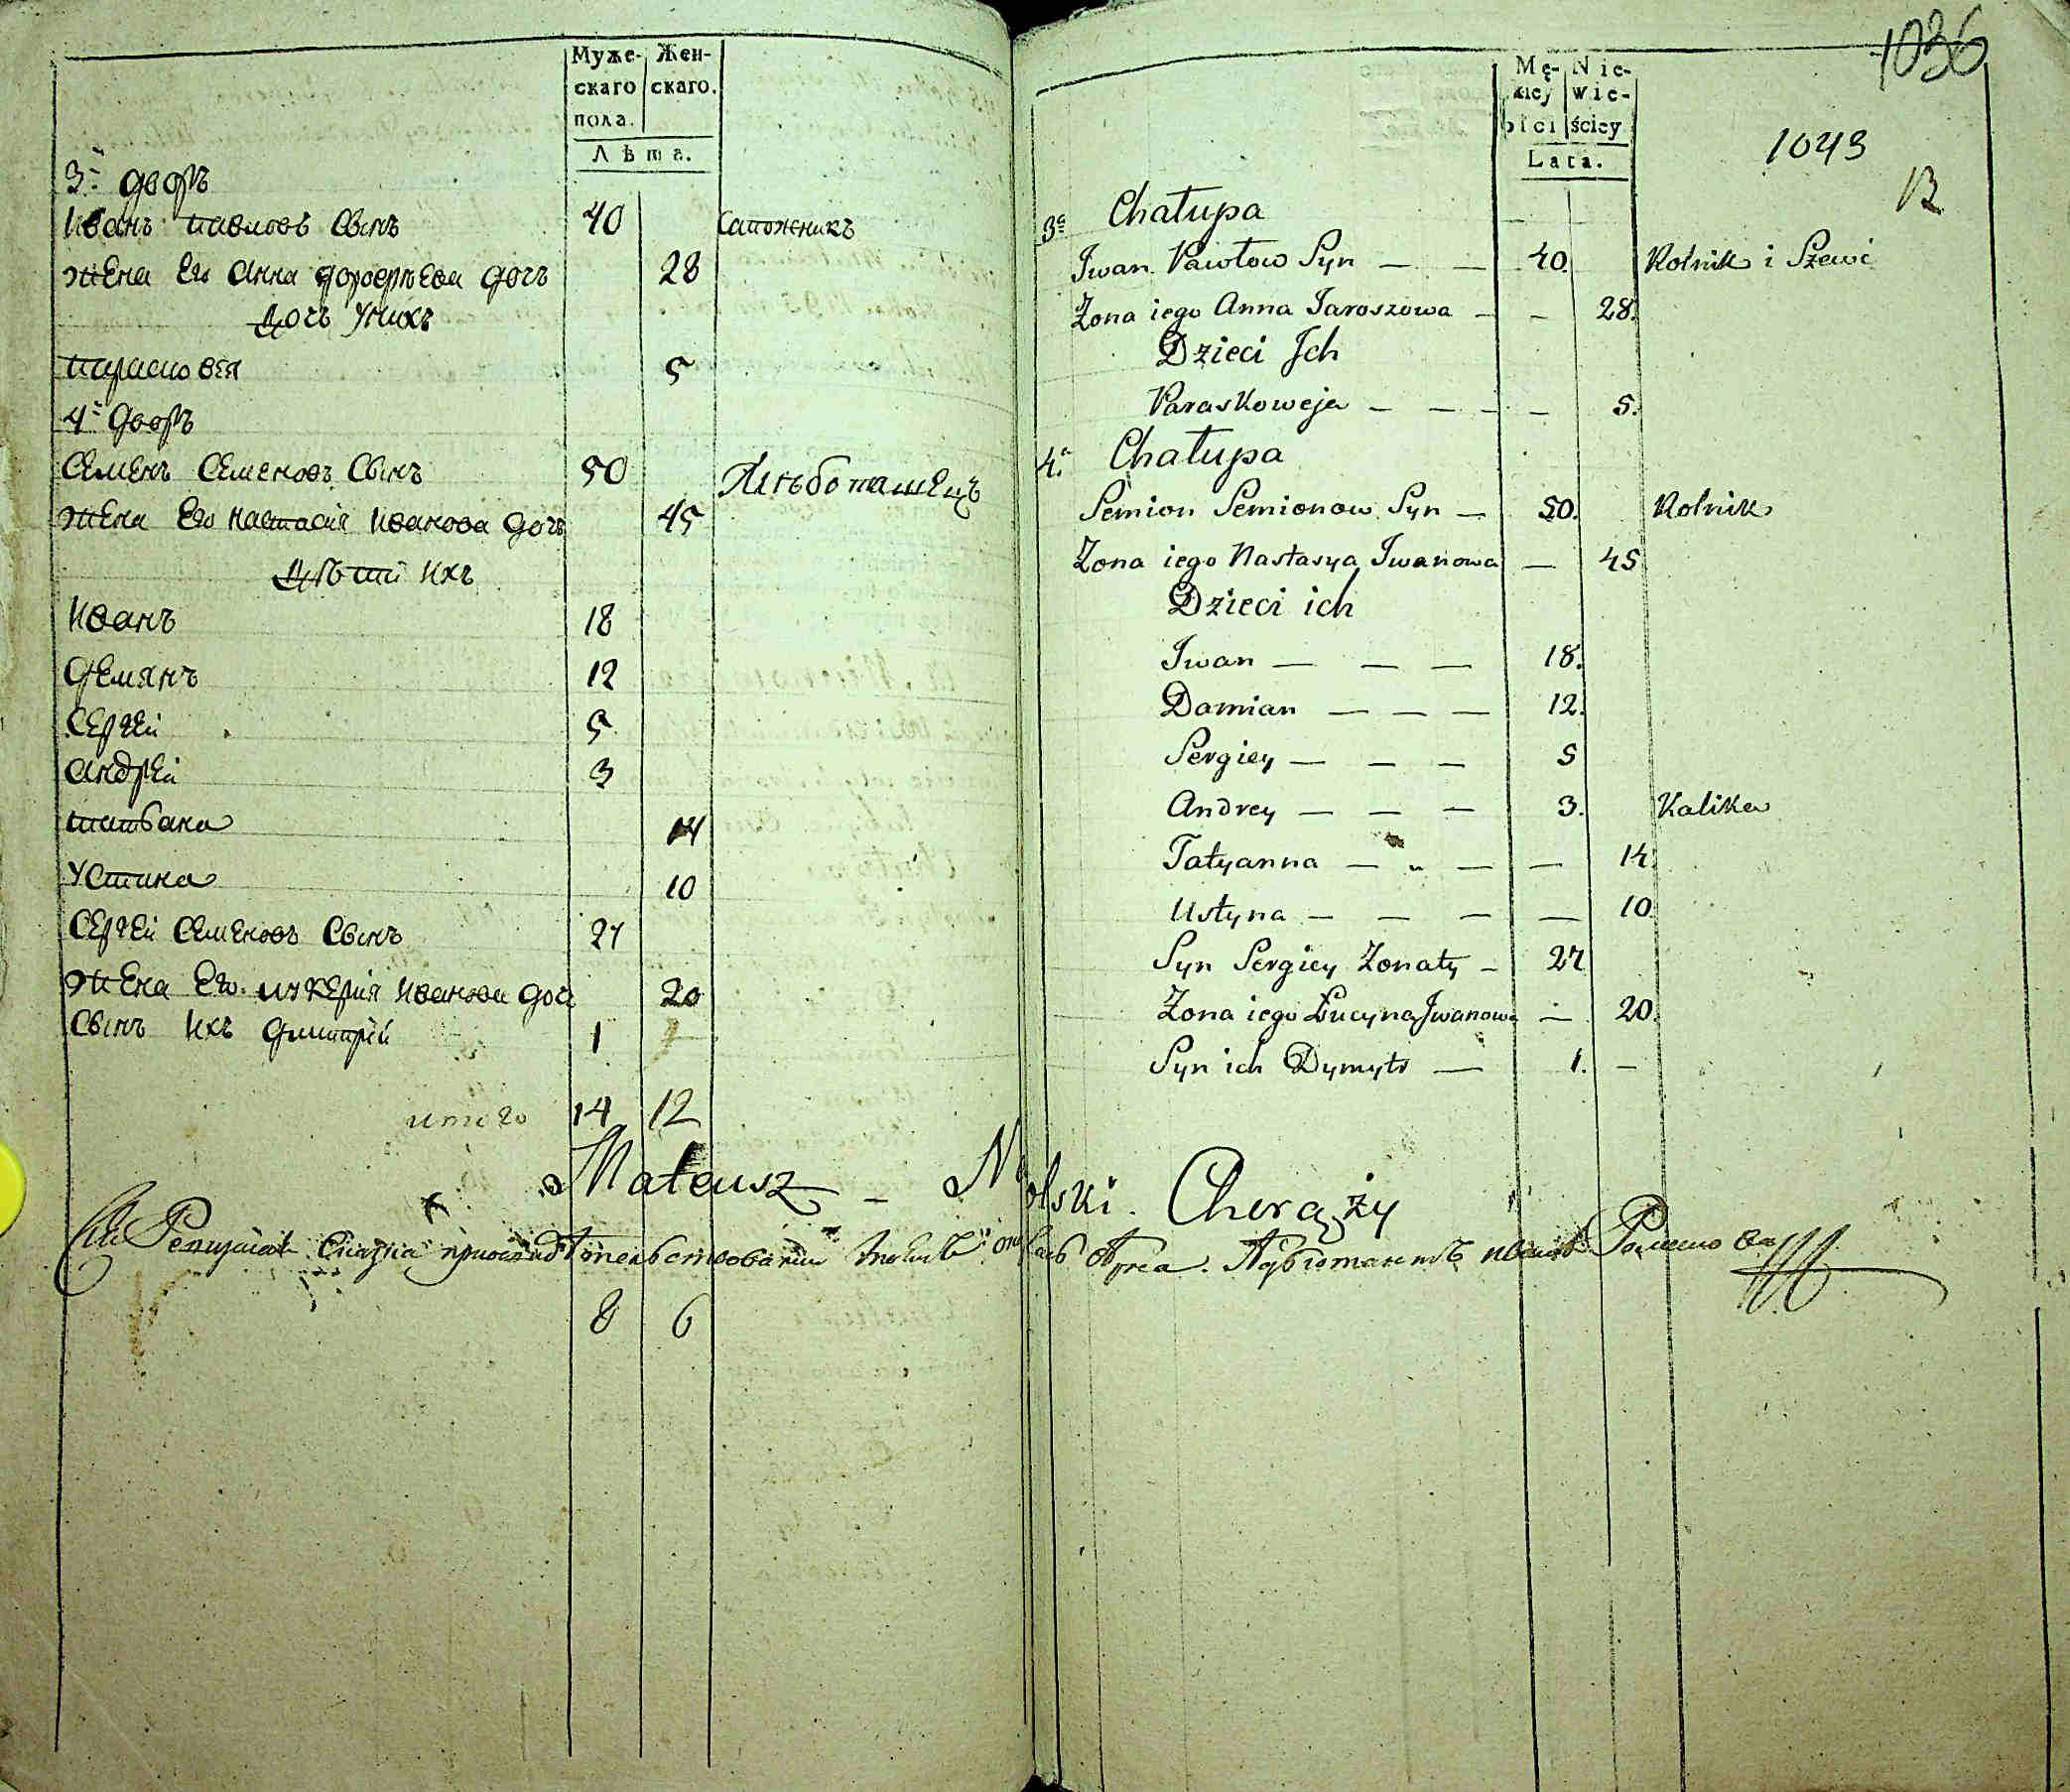 Муже- Жен-
скаго скаго.
пола.
Лѣта.
3й дворъ
Иванъ Павловъ Сынъ 40 Сапожникъ
Жена Его Анна Дорофеѣва дочъ 28
Дочъ Уиихъ
Парасковѣя 5
4й дворъ
Семенъ Семеновъ Сынъ 50 Хлѣбопашецъ
Жена Его Настасия Иванова дочъ 45
Дѣти Ихъ
Иванъ 18
Демянъ 12
Сергей 5
Андрей 3
Татьана 14
Устина 10
Сергей Семеновъ Сынъ 27
Жена Его Лукерия Иванова доч 20
Сынъ Ихъ Дмитрий 1
итого 14 12
8 6
1036
Mę- Nie-
wie-
ści ściey
Lata.
1043
3a Chałupa
Iwan Pawłow Syn — — 40. Rolnik i Szewc
Żona iego Anna Jaroszowa — — 28.
Dzieci Ich
Paraskoweja — — — — 5.
4a Chałupa
Semion Semionow Syn — 50. Rolnik
Żona iego Nastasya Iwanowa — 45
Dzieci ich
Iwan — — — 18.
Damian — — — 12.
Sergiey — — — 5
Andrey — — — 3. Kalika
Tatyanna — — — 14.
Ustyna — — — — 10.
Syn Sergiey Żonaty — 27
Żona iego Łucyna Iwanowa — 20.
Syn ich Dymytr — 1. —
Mateusz — Molski Chorąży